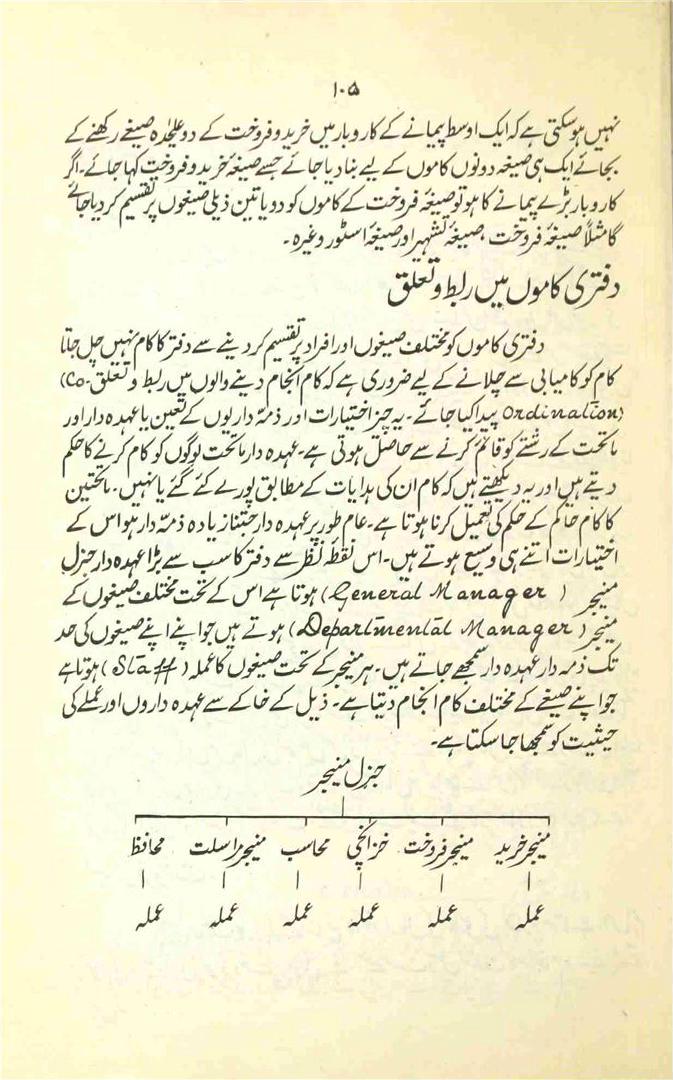 ۱۰۵
نہیں ہوسکتی ہے کہ ایک اوسط پیمانے کے کاروبار میں خرید و فروخت کے دو علیحٰدہ صیغے رکھنے کے
بجائے ایک ہی صیغہ دونوں کاموں کے لیے بنا دیا جائے جسے صیغۂ خرید و فروخت کہا جائے۔ اگر
کاروبار بڑے پیمانے کا ہو تو صیغۂ فروخت کے کاموں کو دو یا تین ذیلی صیغوں پر تقسیم کر دیا جائے
گا مثلاً صیغۂ فروخت، صیغۂ تشہیر اور صیغۂ اسٹور وغیرہ۔
دفتری کاموں میں ربط و تعلق
دفتری کاموں کو مختلف صیغوں اور افراد پر تقسیم کر دینے سے دفتر کا کام نہیں چل جاتا
کام کو کامیابی سے چلانے کے لیے ضروری ہے کہ کام انجام دینے والوں میں ربط و تعلق (Co-
Ordination) پیدا کیا جائے۔ یہ چیز اختیارات اور ذمہ داریوں کے تعین یا عہدہ دار اور
ماتحت کے رشتے کو قائم کرنے سے حاصل ہوتی ہے۔ عہدہ دار ماتحت لوگوں کو کام کرنے کا حکم
دیتے ہیں اور یہ دیکھتے ہیں کہ کام ان کی ہدایات کے مطابق پورے کئے گئے یا نہیں۔ ماتحتین
کا کام حاکم کے حکم کی تعمیل کرنا ہوتا ہے۔ عام طور پر عہدہ دار جتنا زیادہ ذمہ دار ہو اس کے
اختیارات اتنے ہی وسیع ہوتے ہیں۔ اس نقطۂ نظر سے دفتر کا سب سے بڑا عہدہ دار جنرل
منیجر (General Manager) ہوتا ہے اس کے تحت مختلف صیغوں کے
منیجر (Departmental Manager) ہوتے ہیں جو اپنے اپنے صیغوں کی حد
تک ذمہ دار عہدہ دار سمجھے جاتے ہیں۔ ہر منیجر کے تحت صیغوں کا عملہ (Staff) ہوتا ہے
جو اپنے صیغے کے مختلف کام انجام دیتا ہے۔ ذیل کے خاکے سے عہدہ داروں اور عملے کی
حیثیت کو سمجھا جا سکتا ہے۔
جنرل منیجر
منیجر خرید منیجر فروخت خزانچی محاسب منیجر مراسلت محافظ
عملہ عملہ عملہ عملہ عملہ عملہ